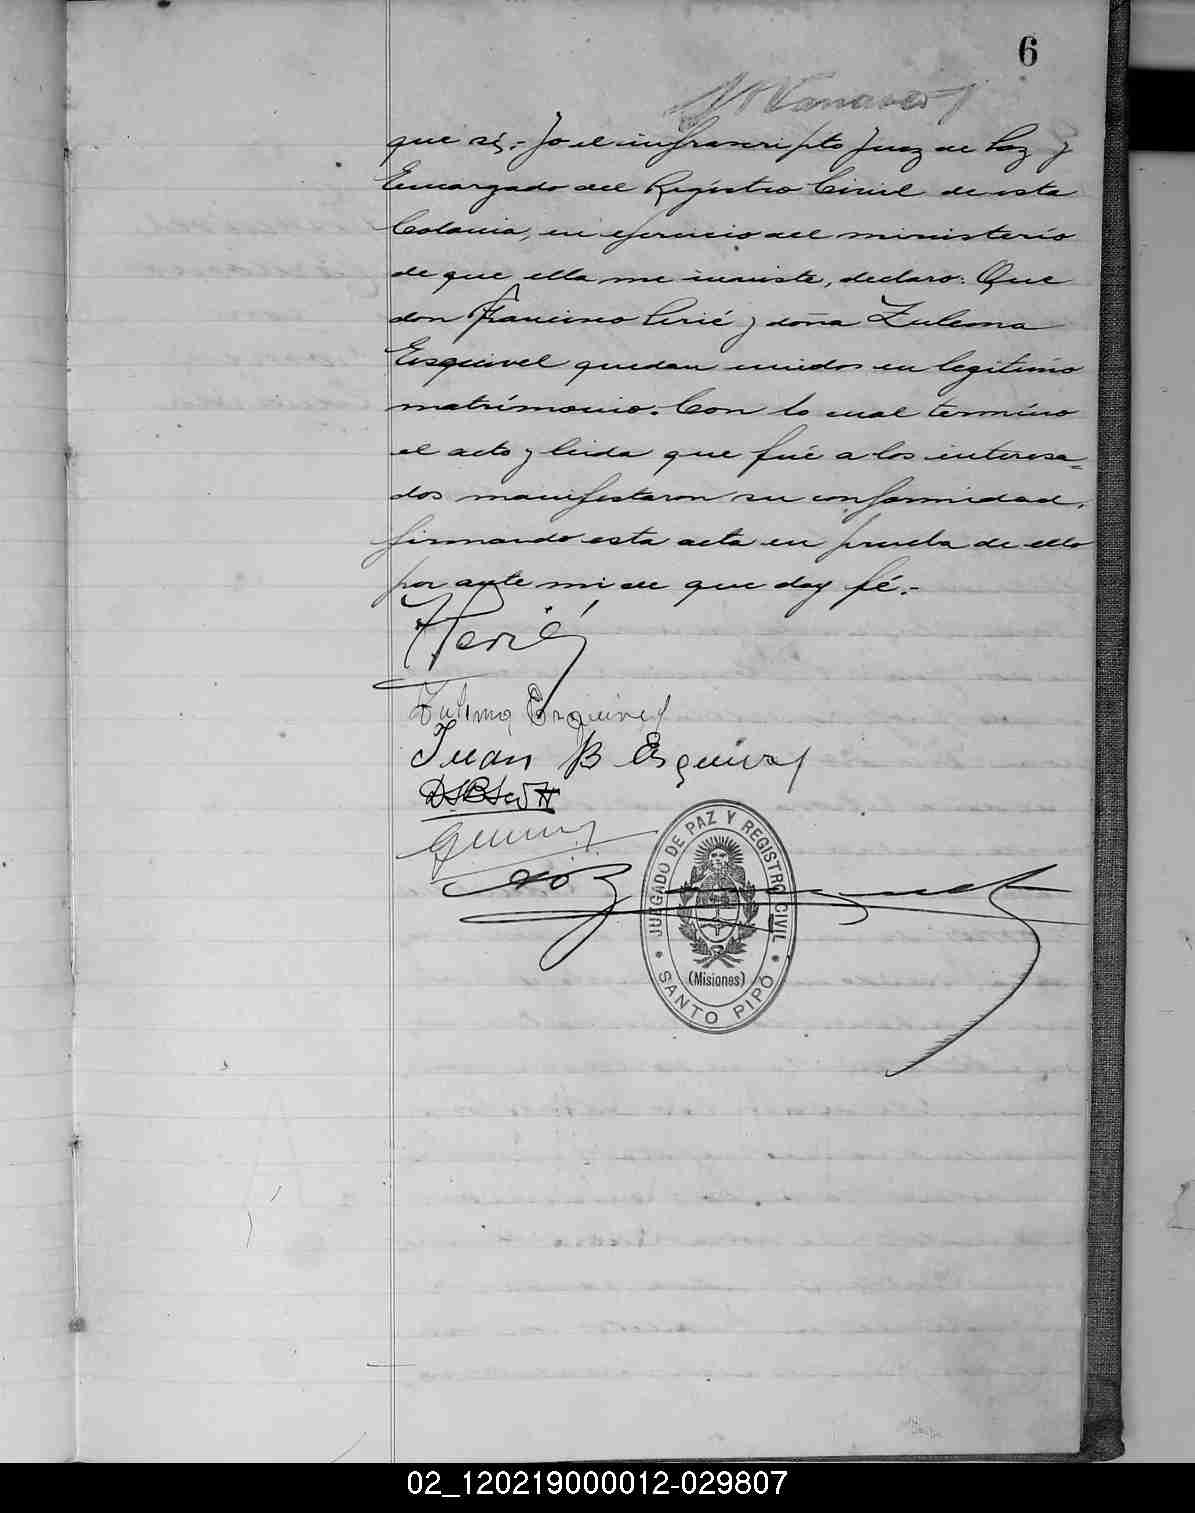 6
que si,- Yo el infrascripto Juez de Paz y
Encargado del Registro Civil de esta
Colonia, en ejercicio del ministerio
de que ella me inviste, declaro: Que
don Francisco Cerié y doña Zulema
Esquivel quedan unidos en legitimo
matrimonio. Con lo cual termino
el acto y leida que fué a los interesa=
dos manifestaron su conformidad,
firmando esta acta en prueba de ello
por ante mi de que doy fé.-
Zulema Esquivel
Juan B Esquivel
JUZGADO DE PAZ Y REGISTRO CIVIL
(Misiones)
SANTO PIPÓ
02_120219000012-029807